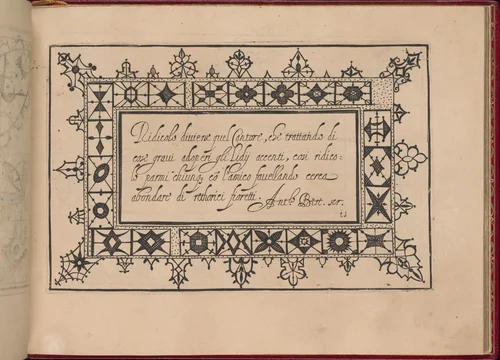 Ridicolo diviene quel Cantore, che trattando di
cose gravi adopera gli Lidy accenti, con ridico=
lo parmi chiunq; cõ l'amico favellando cerca
abondare di rethorici fioretti. Ant.º Bert. scr.